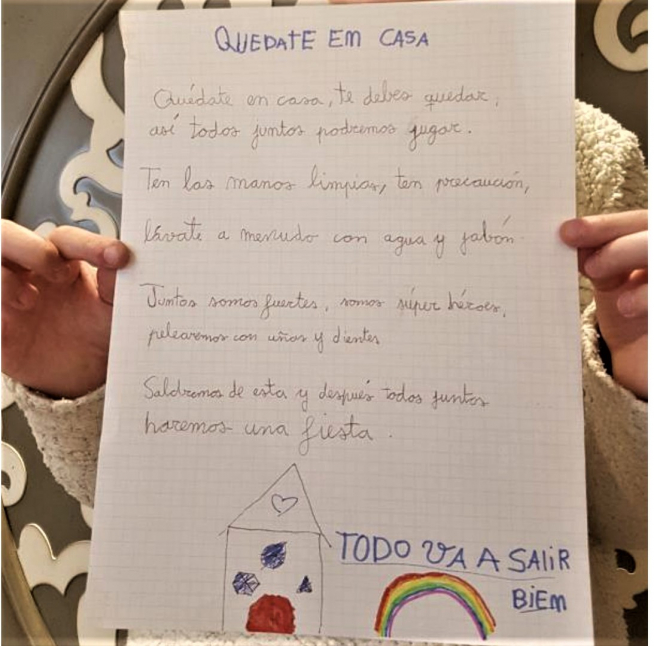 QUEDATE EM CASA
Quédate en casa, te debes quedar,
así todos juntos podremos jugar.
Ten las manos limpias, ten precaución,
lávate a menudo con agua y jabón.
Juntos somos fuertes, somos súper héroes,
pelearemos con uñas y dientes
Saldremos de esta y después todos juntos
haremos una fiesta.
TODO VA A SALIR
BIEM